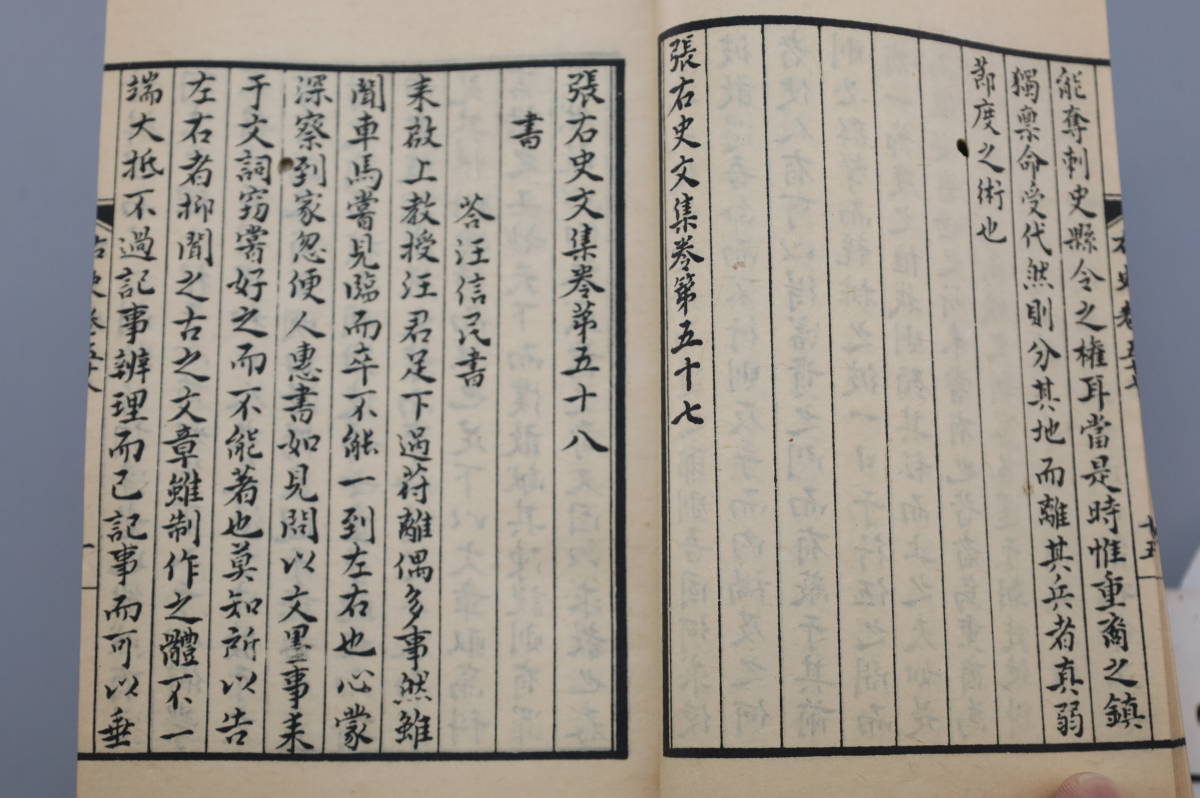 能奪刺史縣令之權耳當是時惟重裔之鎮
獨稟命受代然則分其地而離其兵者真弱
莭度之術也
張右史文集卷第五十七
張右史文集卷苐五十八
書
荅汪信民書
耒啟上教授汪君足下過苻離偶多事然雖
聞車馬嘗見臨而卒不能一到左右也心蒙
深察到家忽便人惠書如見問以文墨事耒
于文詞竊嘗好之而不能著也莫知所以告
左右者抑聞之古之文章雖制作之體不一
端大抵不過記事辨理而已記事而可以垂